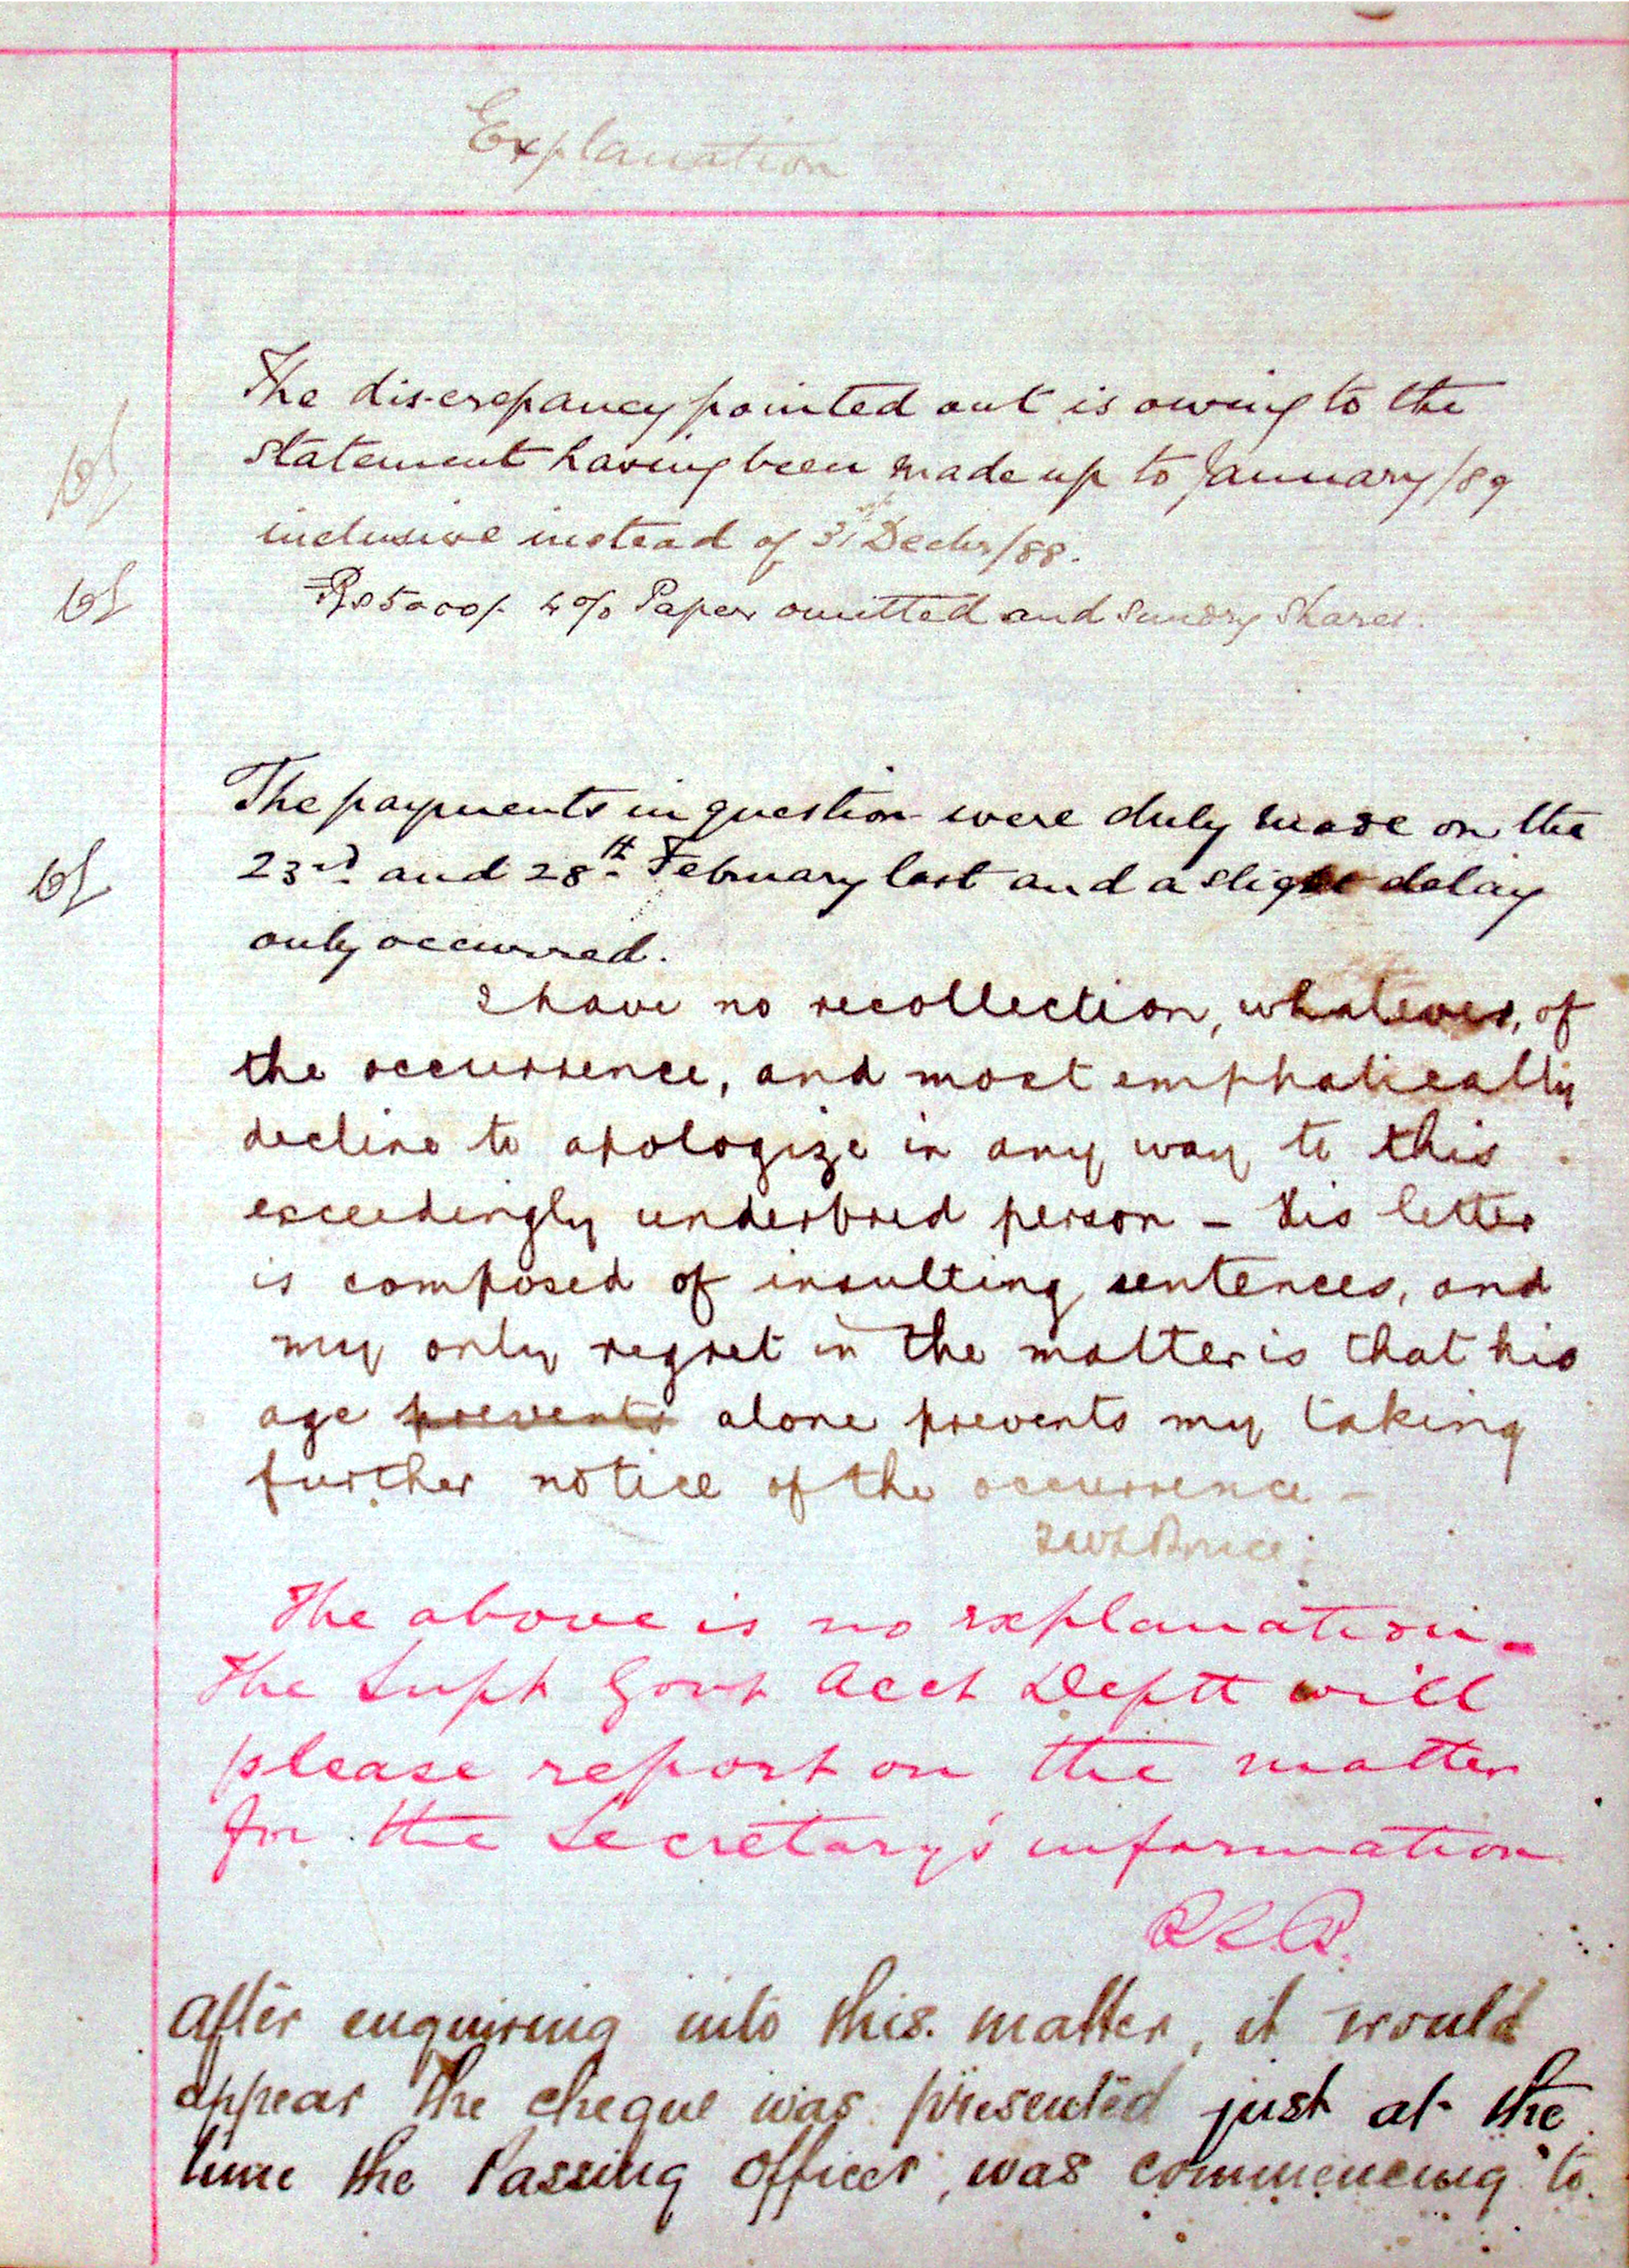 Explanation
The discrepancy pointed out is owing to the
statement having been made up to January/89
inclusive instead of 31st Decbr/88.
Rs 5000/- 4% Paper omitted and sundry shares.
The payments in question were duly made on the
23rd and 28th February last and a slight delay
only occurred.
I have no recollection, whatever, of
the occurrence, and most emphatically
decline to apologize in any way to this
exceedingly underbred person - His letter
is composed of insulting sentences, and
my only regret in the matter is that his
age prevents alone prevents my taking
further notice of the occurrence -
The above is no explanation -
The Supt Govt Acct Deptt will
please report on the matter
for the Secretary's information
After enquiring into this matter, it would
appear the cheque was presented just at the
time the Passing Officer, was commencing to